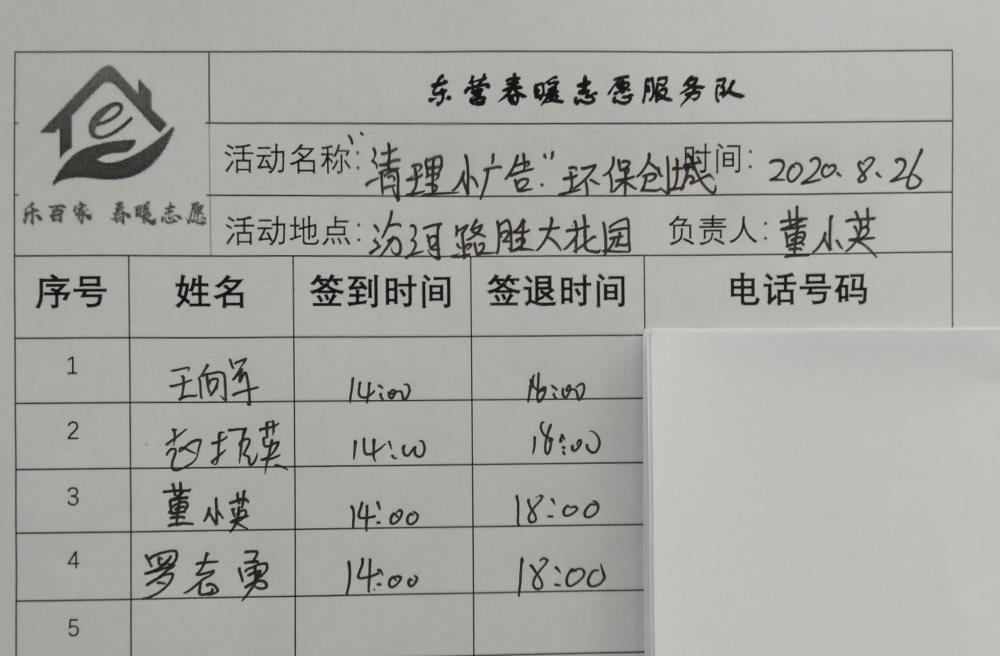 东营春暖志愿服务队
活动名称:"清理小广告"环保创城 时间: 2020.8.26
乐百家 春暖志愿
活动地点:汾河路胜大花园 负责人:董小英
序号 姓名 签到时间 签退时间 电话号码
1 王向军 14:00 16:00
2 赵振英 14:00 18:00
3 董小英 14:00 18:00
4 罗志勇 14:00 18:00
5